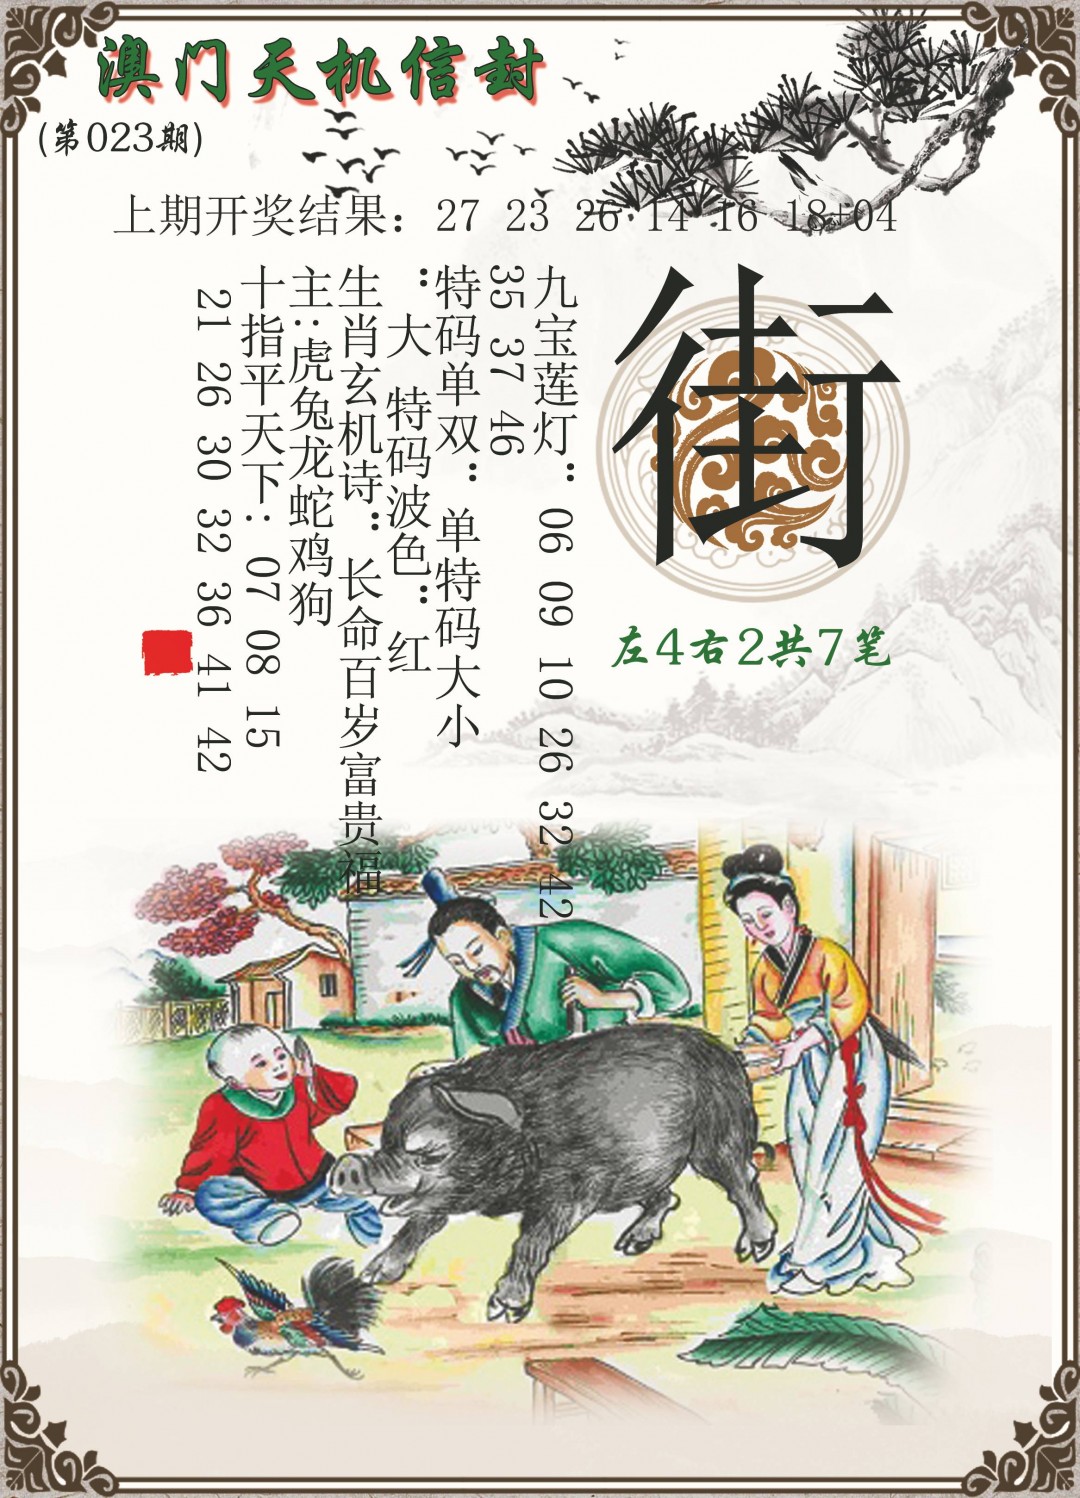 澳门天机信封
(第023期)
上期开奖结果：27 23 26 14 16 18+04
街
左4右2共7笔
九宝莲灯：06 09 10 26 32 42
35 37 46
特码单双：单特码大小
：大 特码波色：红
生肖玄机诗：长命百岁富贵福
主:虎兔龙蛇鸡狗
十指平天下：07 08 15
21 26 30 32 36 41 42